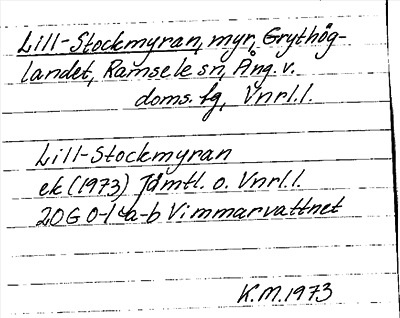 Lill-Stockmyran, myr, Grythög-
landet, Ramsele sn, Ång. v.
doms. fg, Vnrl.l.
Lill-Stockmyran
ek (1973) Jämtl. o. Vnrl.l.
20G 0-1 a-b Vimmarvattnet
K.M. 1973